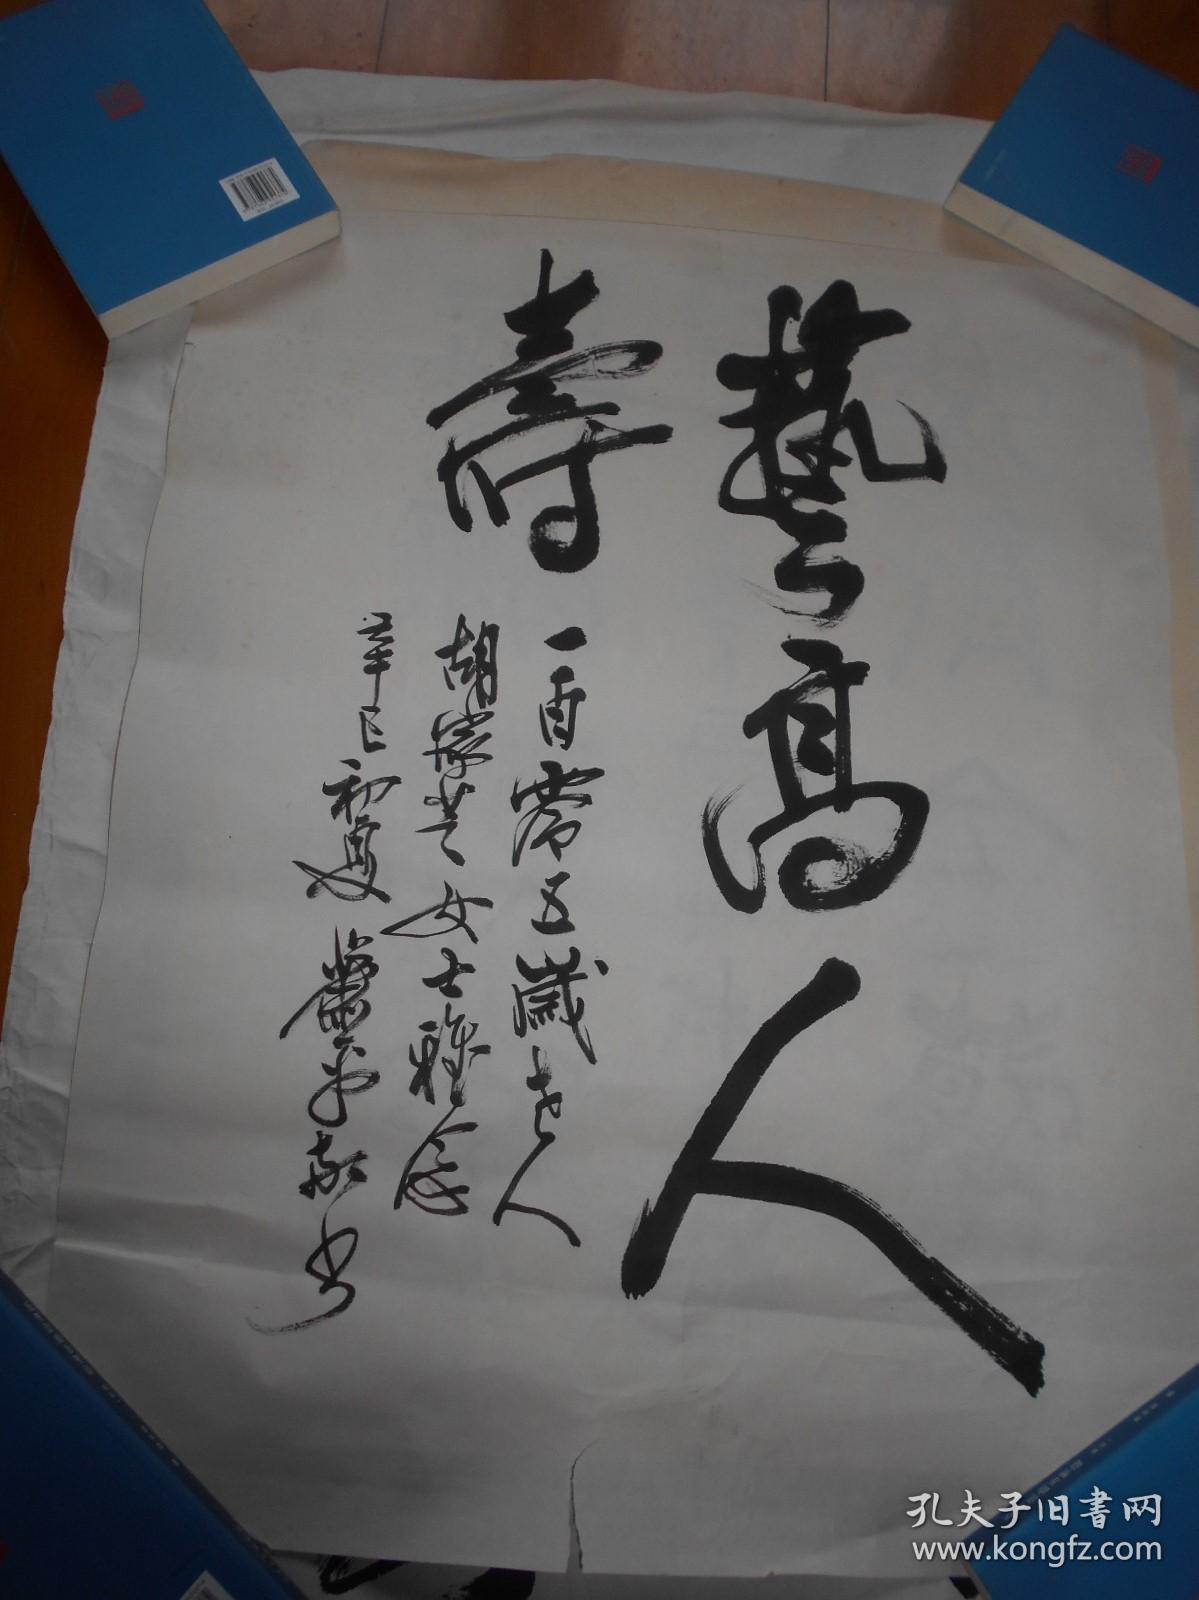 藝高人
壽
一百零五歲老人
胡家芝女士雅念
辛巳初夏 蕭平敬书
孔夫子旧书网
www.kongfz.com